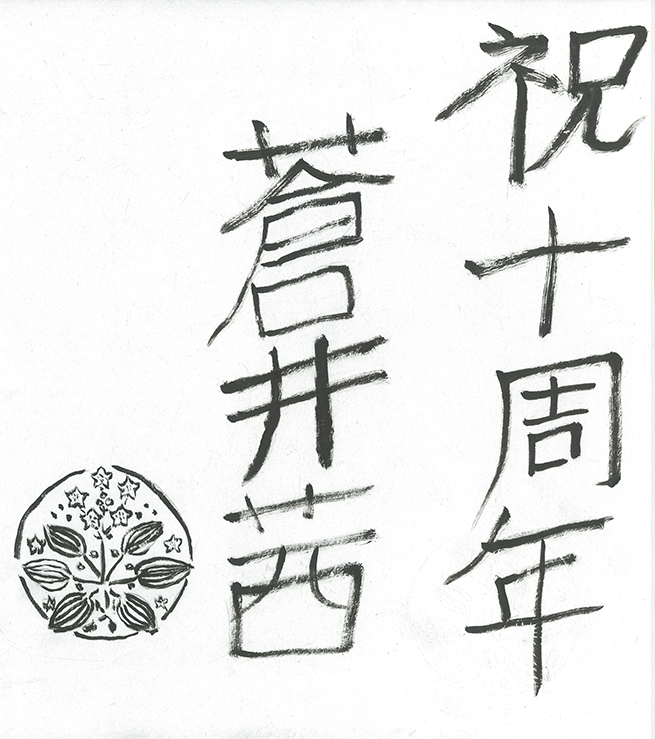 祝十周年
蒼井茜